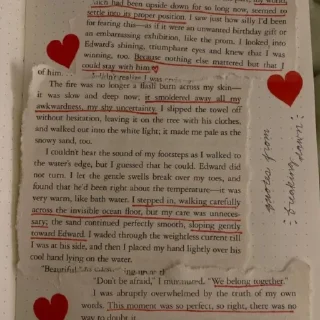 had been upside down for so long now, seemed to
settle into its proper position. I saw just how silly I'd been
for fearing this—as if it were an unwanted birthday gift or
an embarrassing exhibition, like the prom. I looked into
Edward's shining, triumphant eyes and knew that I was
winning, too. Because nothing else mattered but that I
could stay with him
of him
The fire was no longer a flash burn across my skin—
it was slow and deep now; it smoldered away all my
awkwardness, my shy uncertainty. I slipped the towel off
without hesitation, leaving it on the tree with his clothes,
and walked out into the white light; it made me pale as the
snowy sand, too.
I couldn't hear the sound of my footsteps as I walked to
the water's edge, but I guessed that he could. Edward did
not turn. I let the gentle swells break over my toes, and
found that he'd been right about the temperature—it was
very warm, like bath water. I stepped in, walking carefully
across the invisible ocean floor, but my care was unneces-
sary; the sand continued perfectly smooth, sloping gently
toward Edward. I waded through the weightless current till
I was at his side, and then I placed my hand lightly over his
cool hand lying on the water.
"Beautiful,"
"Don't be afraid," I murmured. "We belong together."
I was abruptly overwhelmed by the truth of my own
words. This moment was so perfect, so right, there was no
way to doubt it.
quotes from
breaking dawn: